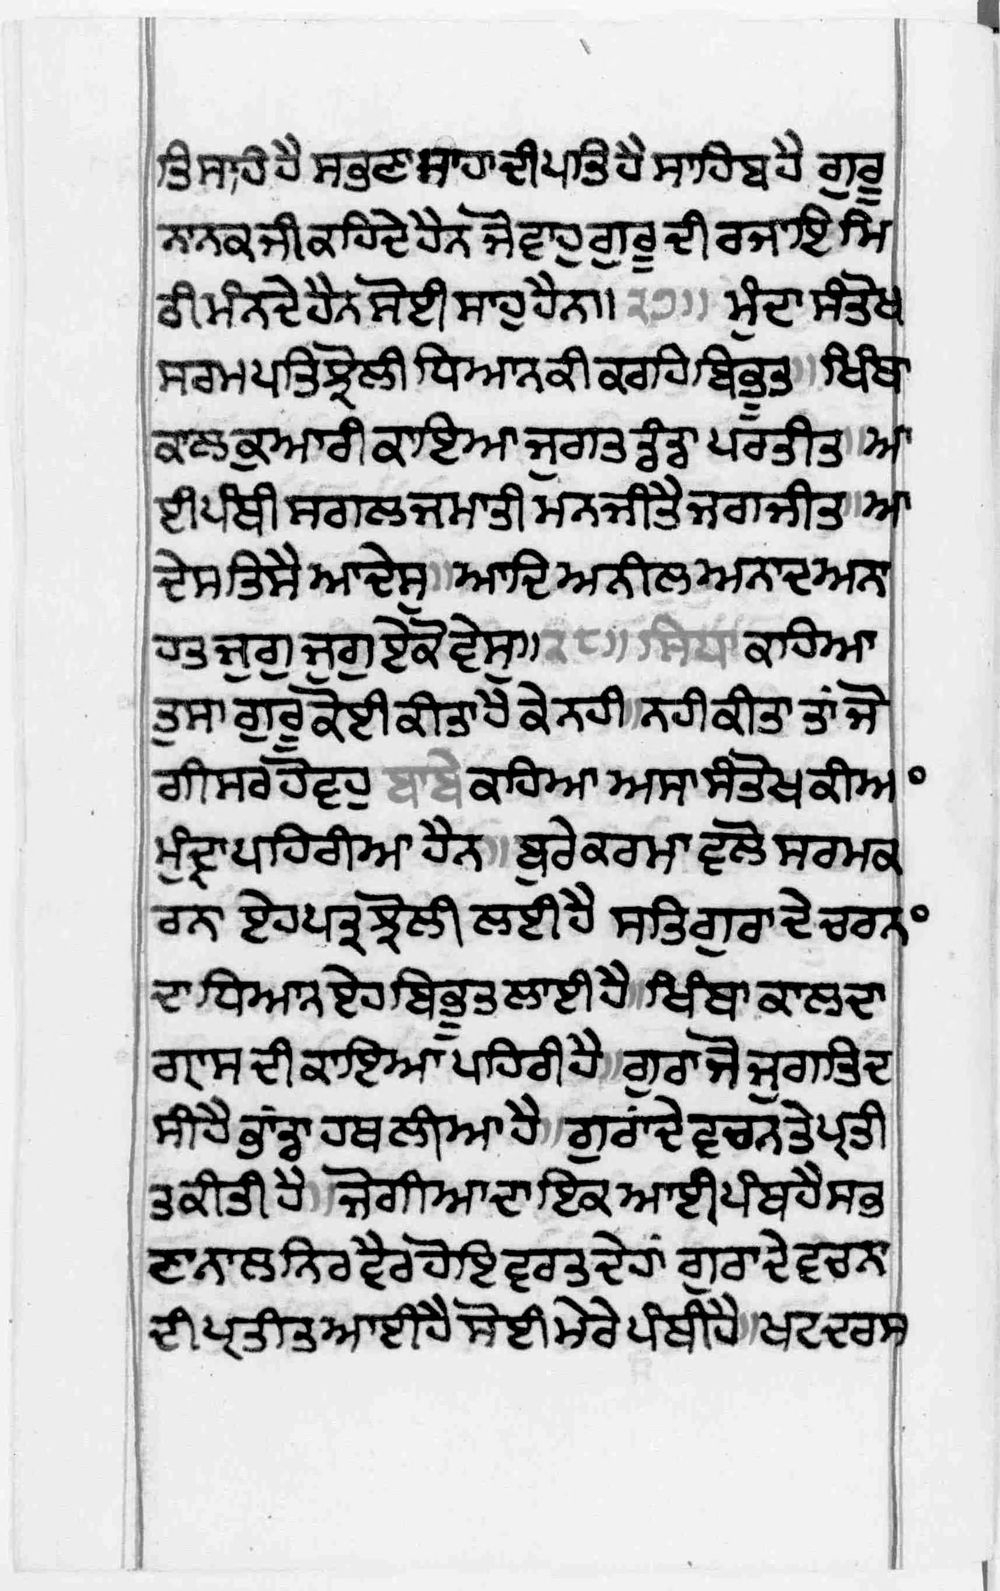 ਤਿਸਾਹਿ ਹੈ ਸਭਣਾ ਸਾਹਾ ਦੀ ਪਾਤਿ ਹੈ ਸਾਹਿਬ ਹੈ ਗੁਰੂ
ਨਾਨਕ ਜੀ ਕਹਿਦੇ ਹੈਨ ਜੋ ਵਾਹੁ ਗੁਰੂ ਦੀ ਰਜਾਇ ਮਿ
ਠੀ ਮੰਨਦੇ ਹੈਨ ਸੋਈ ਸਾਹੁ ਹੈਨ॥ ੨੭॥ ਮੁੰਦਾ ਸੰਤੋਖ
ਸਰਮ ਪਤਿ ਝੋਲੀ ਧਿਆਨ ਕੀ ਕਰਹਿ ਬਿਭੂਤ॥ ਖਿੰਥਾ
ਕਾਲ ਕੁਆਰੀ ਕਾਇਆ ਜੁਗਤ ਡੰਡਾ ਪਰਤੀਤ॥ ਆ
ਈ ਪੰਥੀ ਸਗਲ ਜਮਾਤੀ ਮਨ ਜੀਤੈ ਜਗ ਜੀਤ॥ ਆ
ਦੇਸ ਤਿਸੈ ਆਦੇਸੁ॥ ਆਦਿ ਅਨੀਲ ਅਨਾਦ ਅਨਾ
ਹਤ ਜੁਗੁ ਜੁਗੁ ਏਕੋ ਵੇਸੁ॥੨੮॥ ਸਿਧਾ ਕਾਹਿਆ
ਤੁਸਾ ਗੁਰੂ ਕੋਈ ਕੀਤਾ ਹੈ ਕੇ ਨਹੀ॥ ਨਹੀ ਕੀਤਾ ਤਾਂ ਜੋ
ਗੀਸਰ ਹੋਵਹੁ ਬਾਬੇ ਕਹਿਆ ਅਸਾ ਸੰਤੋਖ ਕੀਆ॰
ਮੁੰਦ੍ਰਾ ਪਹਿਰੀਆ ਹੈਨ॥ ਬੁਰੇ ਕਰਮਾ ਵਲੋ ਸਰਮ ਕ
ਰਨਾ ਏਹ ਪਤ੍ਰ ਝੋਲੀ ਲਈ ਹੈ ਸਤਿਗੁਰਾ ਦੇ ਚਰਨ॰
ਦਾ ਧਿਆਨ ਏਹ ਬਿਭੂਤ ਲਾਈ ਹੈ॥ ਖਿੰਥਾ ਕਾਲ ਦਾ
ਗ੍ਰਾਸ ਦੀ ਕਾਇਆ ਪਹਿਰੀ ਹੈ॥ ਗੁਰਾ ਜੋ ਜੁਗਤਿ ਦ
ਸੀ ਹੈ ਡਾਂਡਾ ਹਥ ਲੀਆ ਹੈ॥ ਗੁਰਾਂ ਦੇ ਵਚਨ ਤੇ ਪ੍ਰਤੀ
ਤ ਕੀਤੀ ਹੈ॥ ਜੋਗੀਆ ਦਾ ਇਕ ਆਈ ਪੰਥ ਹੈ ਸਭ
ਣਾ ਨਾਲ ਨਿਰਵੈਰ ਹੋਇ ਵਰਤਦੇ ਹਾਂ ਗੁਰਾ ਦੇ ਵਚਨ
ਦੀ ਪ੍ਰਤੀਤ ਆਈ ਹੈ ਸੋਈ ਮੇਰੇ ਪੰਥੀ ਹੈ॥ ਖਟ ਦਰਸ